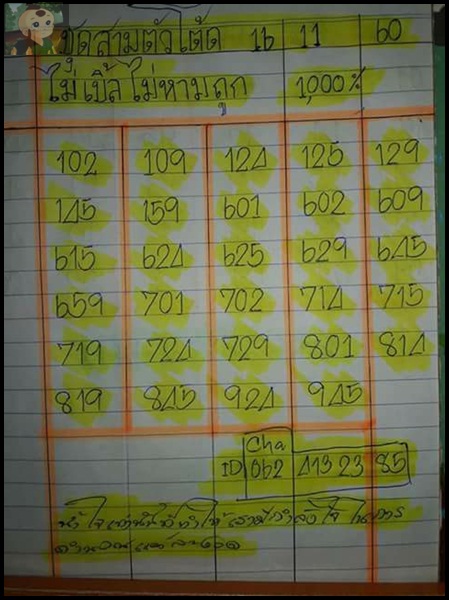 ชุดสามตัวโต๊ด 16 11 60
ไม่เบิ้ลไม่หามถูก 1,000%
102 109 124 125 129
145 159 601 602 609
615 624 625 629 645
659 701 702 714 715
719 724 729 801 814
819 845 924 945
Cha
ID 062 413 23 85